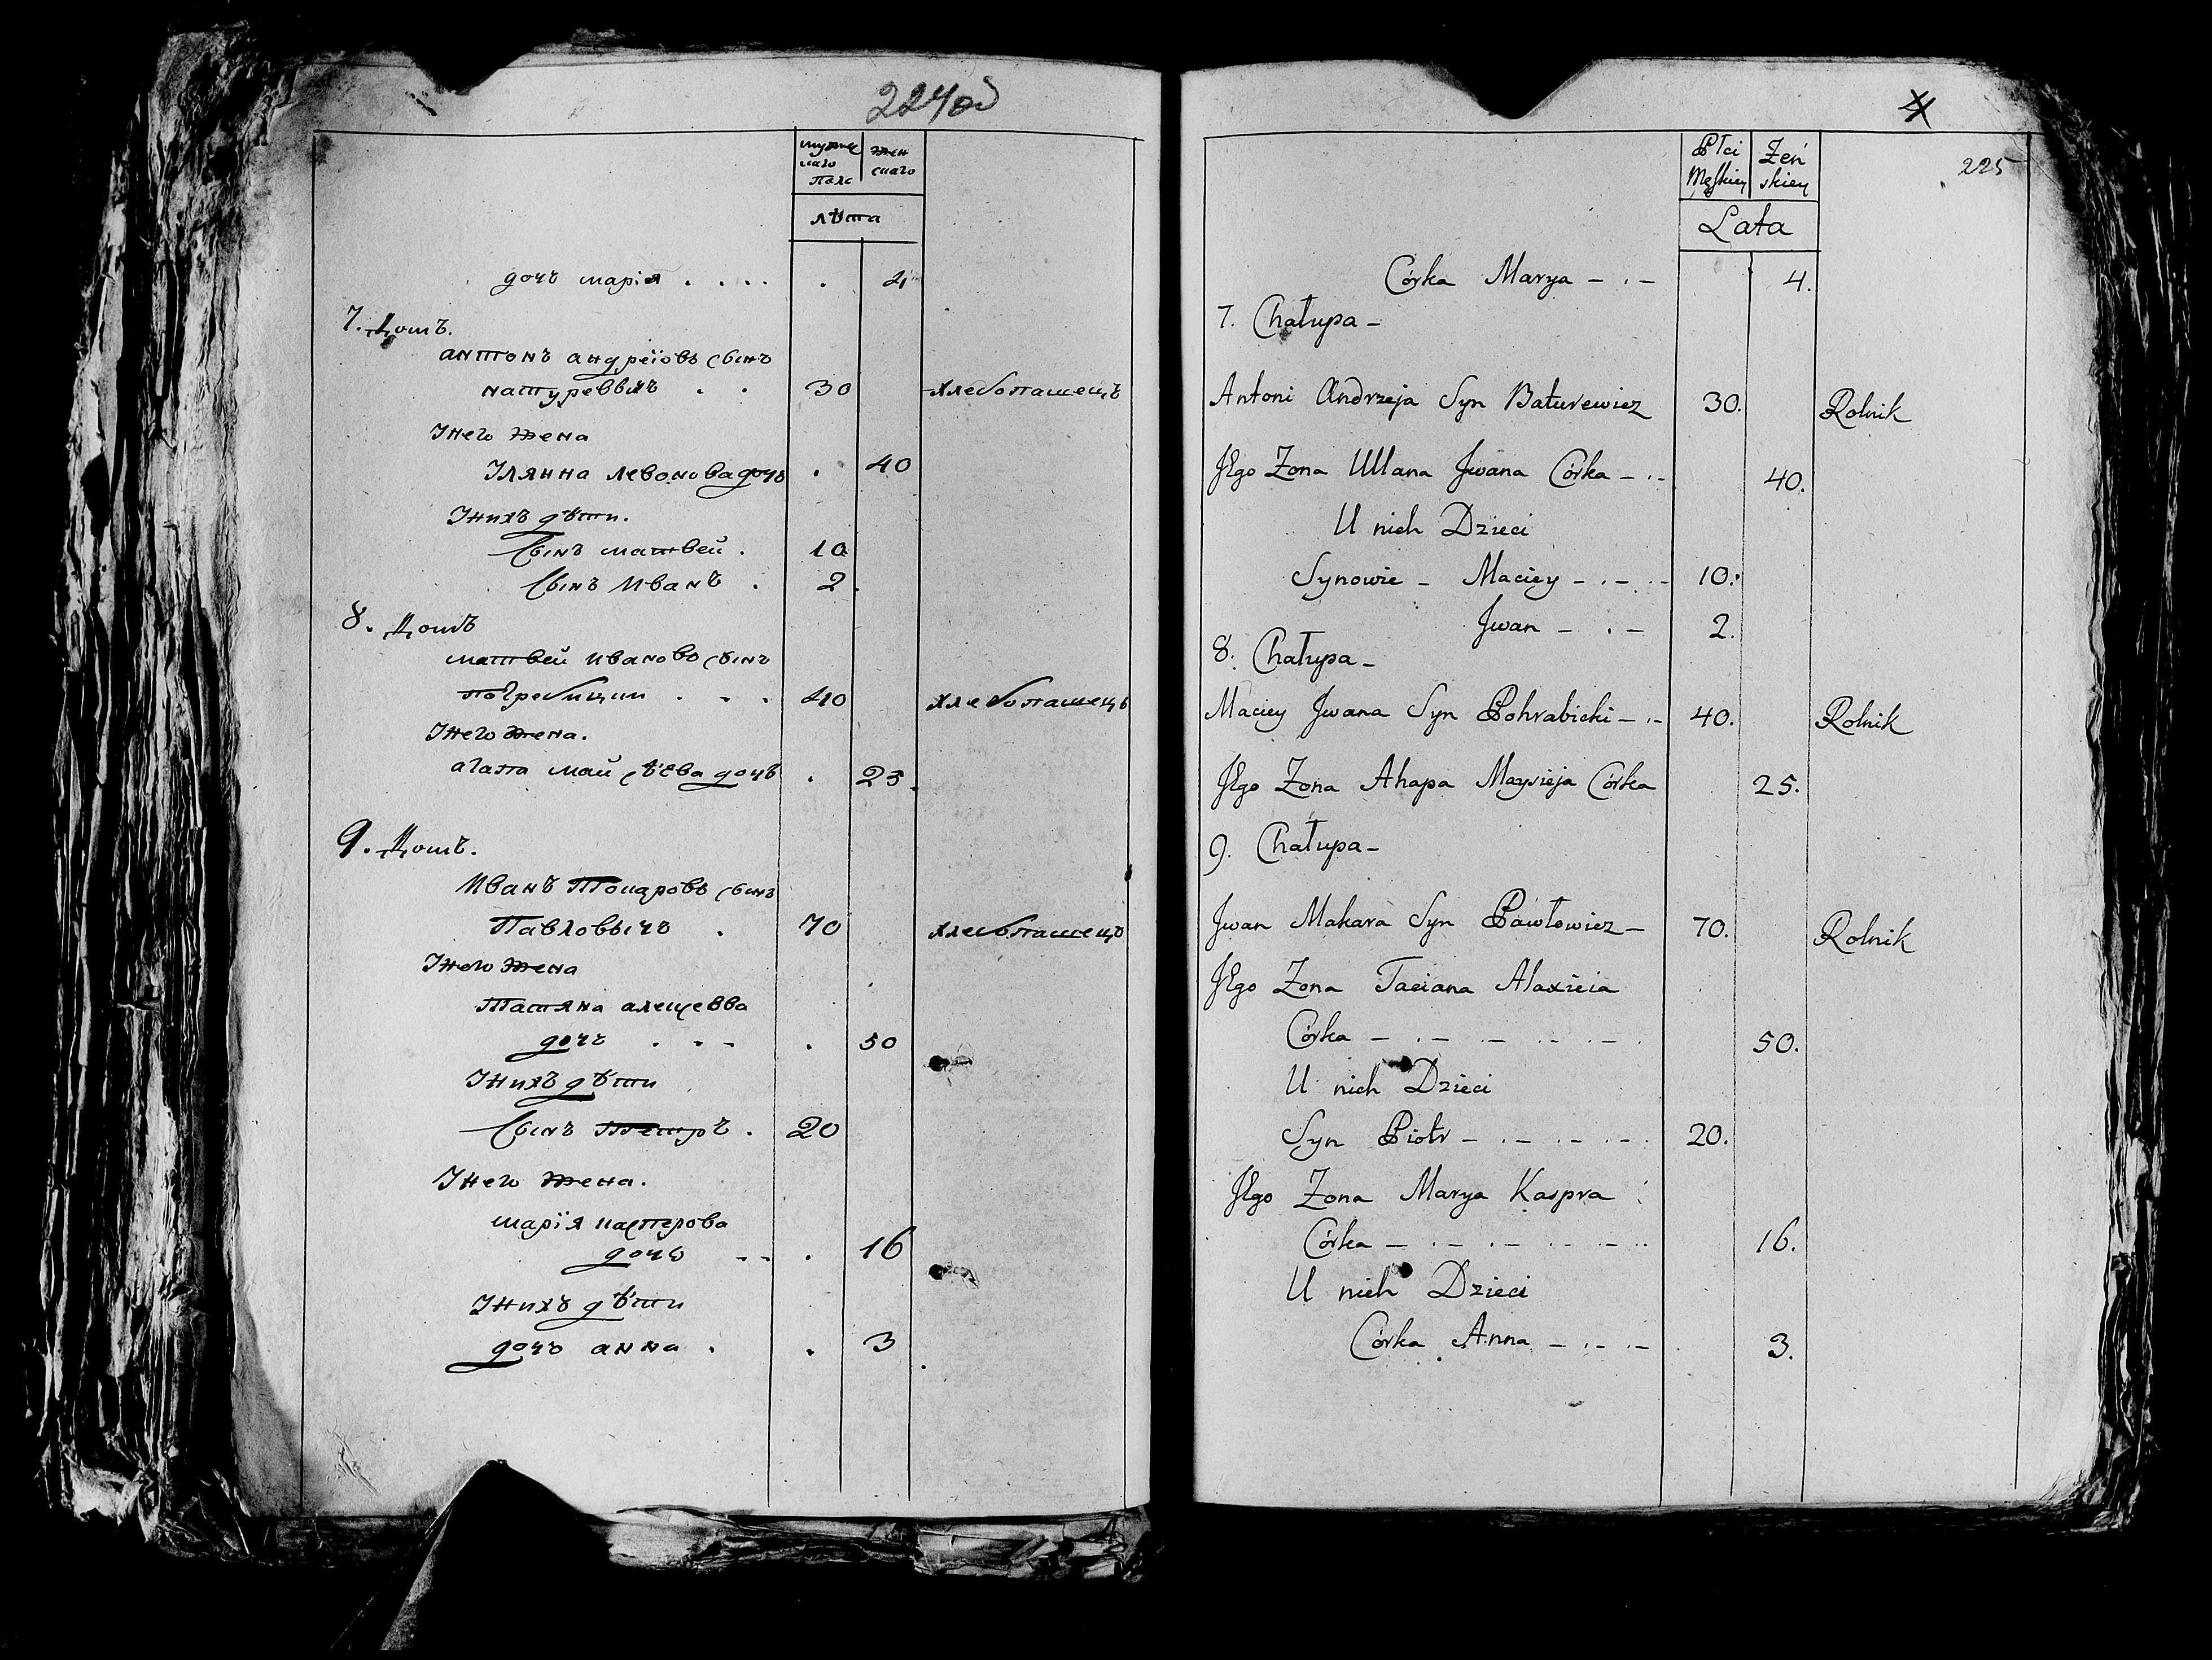 224об
мужес женс
каго скаго
пола
лѣта
дочь марія . . . . . 4
7. Домъ.
антонъ андреiовъ сынъ
натуреввичъ . . 30 хлебопашецъ
Унего жена
Улянна левонова дочь . 40
Унихъ дѣти.
Сынъ матвей . 10
Сынъ иванъ . 2
8. Домъ
матвей ивановъ сынъ
погребицки . . . 40 хлебопашецъ
Унего жена.
агапа май сѣева дочь . 25.
9. Домъ.
иванъ Токаровъ сынъ
Павловычъ . 70 хлебопашецъ
Унего жена
Татяна алецевва
дочь . . - . 50
Унихъ дѣти
Сынъ Петръ . 20
Унего жена.
марiя касперова
дочь - - . 16
Унихъ дѣти
дочь анна . . 3
4
225
Płci Żeń
Męskiey skiey
Lata
Córka Marya - . - 4.
7. Chałupa -
Antoni Andrzeja Syn Baturewicz 30. Rolnik
Jego Zona Ullana Jwana Córka - . - 40.
U nich Dzieci
Synowie - Maciey - . - . - 10.
Jwan - . - 2.
8. Chałupa -
Maciey Jwana Syn Pohrabicki - . - 40. Rolnik
Jego Zona Ahapa Maysieja Córka 25.
9. Chałupa -
Jwan Makara Syn Pawłowicz - 70. Rolnik
Jego Zona Taciana Alaxieia
Córka - . - . - . - . - . 50.
U nich Dzieci
Syn Piotr - . - . - . - . 20.
Jego Zona Marya Kaspra
Córka - . - . - . - . - . 16.
U nich Dzieci
Córka Anna - . - . - 3.